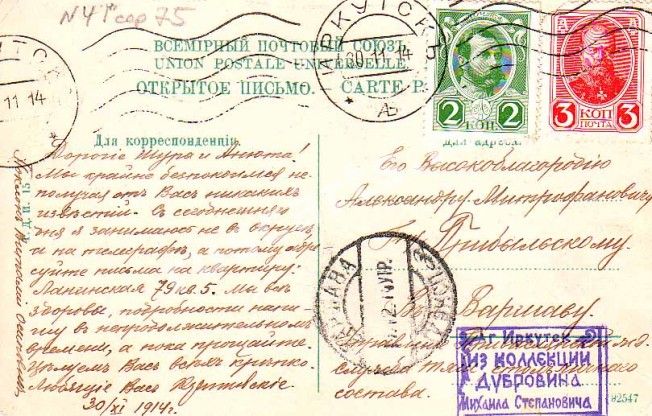 N41 сер 75
ВСЕМІРНЫЙ ПОЧТОВЫЙ СОЮЗЪ.
UNION POSTALE UNIVERSELLE.
ОТКРЫТОЕ ПИСЬМО. — CARTE P.
ИРКУТСКЪ
30 11 14
11 14
2 2
КОП.
3 КОП 3
ПОЧТА
Для корреспонденціи.
Для адреса.
Дорогіе Шура и Анюта!
Мы крайне безпокоимся не
получая отъ Васъ никакихъ
извѣстій. Съ сегодняшня
дня я занимаюсь не въ
а на телеграфѣ, а потому адре
суйте письма на квартиру:
Ланинская 79 кв. 5. Мы всѣ
здоровы, подробности напи
шу въ непродолжительномъ
времени, а пока прощайте.
Цѣлуемъ Васъ всѣхъ крѣпко.
Любящіе Васъ
30/XI 1914 г.
Его Высокоблагородію
Александру Митрофановичу
Прибыльскому.
Варшаву.
служба
состава.
г Иркутск
ИЗ КОЛЛЕКЦИИ
ДУБРОВИНА
МИХАИЛА СТЕПАНОВИЧА
92547